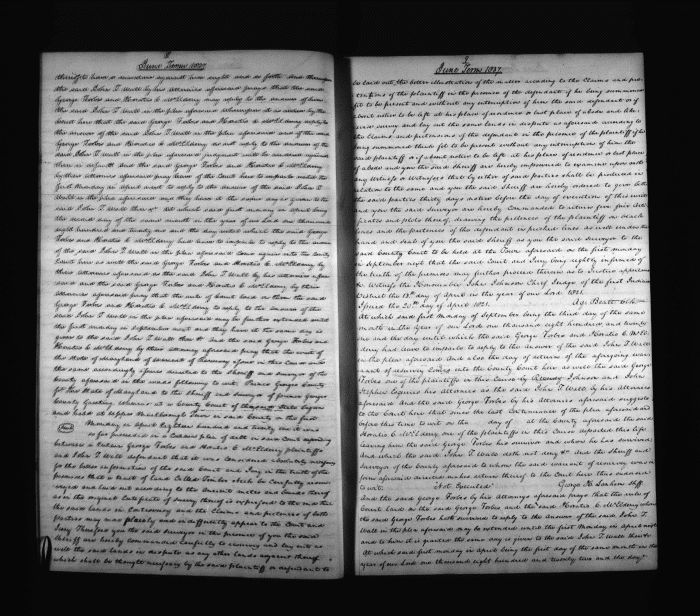 June Term 1827
therefrom have a mandam against him right and so forth And thereupon
the said John T Wall by his attorney aforesaid prays that the said
George Forbes and Horatio C McElderry may reply to the answer of him
the said John T Wall in the plea aforesaid Whereupon it is ruled by the
Court here that the said George Forbes and Horatio C McElderry reply to
the answer of the said John T Wall in the plea aforesaid and if the said
George Forbes and Horatio C McElderry do not reply to the answer of the
said John T Wall in the plea aforesaid judgment will be rendered against
them in default And the said George Forbes and Horatio C McElderry
by their attorney aforesaid pray leave of the Court here to imparle until the
first Monday in April next to reply to the answer of the said John T
Wall in the plea aforesaid and they have it the same day is given to the
said John T Wall there &c At which said first monday in April being
the second day of the said month in the year of our Lord one thousand
eight hundred and twenty one and the day until which the said George
Forbes and Horatio C McElderry had leave to imparle to reply to the answer
of the said John T Wall in the plea aforesaid come again into the County
Court here as well the said George Forbes and Horatio C McElderry by
their Attorney aforesaid as the said John T Wall by his attorney afore
said and the said George Forbes and Horatio C McElderry by their
Attorney aforesaid pray that the rule of Court laid on them the said
George Forbes and Horatio C McElderry to reply to the answer of the
said John T Wall in the plea aforesaid may be further extended until
the first monday in september next and they have it the same day is
given to the said John T Wall there &c And the said George Forbes and
Horatio C McElderry by their attorney aforesaid pray that the writ of
the State of Maryland of warrant of resurvey issue in this Cause and
the same accordingly issues directed to the Sheriff and surveyor of the
County aforesaid in the words following to wit. Prince Georges County
Sct The State of Maryland to the sheriff and surveyor of prince Georges
County Greeting whereas at a County Court of
and held at Upper Marlborough Town in said County on the first
Monday in April Eighteen hundred and twenty one it was
so far proceeded in a certain plea of in said Court depending
between a certain George Forbes and Horatio C McElderry plaintiffs
and John T Wall defendant that it was considered absolutely necessary
for the better information of the said Court and Jury in the truth of the
premises that a tract of Land Called should be carefully
surveyed and laid out according to the Ancient metes and bounds thereof
as in the original Certificate of survey thereof is expressed to the end that
the said lands in Controversy and the Claims and pretences of both
parties may more plainly and indifferently appear to the Court and
Jury Therefore you the said surveyor in the presence of you the said
Sheriff are hereby commanded carefully to survey and lay out as
well the said lands in dispute as any other lands against thereof
which shall be thought necessary by the said plaintiff or defendant to
June Term 1827.
be laid out the better illustration of the matter according to the Claims and pre-
tensions of the plaintiff in the presence of the defendant if he being summoned
fit to be present and without any interruption of him the said defendant or if
absent notice to be left at his place of residence or last place of abode and like
wise survey and lay out the same lands in dispute as aforesaid according to
the Claims and pretensions of the defendant in the presence of the plaintiff if he
being summoned think fit to be present without any interruption of him the
said plaintiff or if absent notice to be left at his place of residence or last place
of abode and you the said Sheriff are hereby impowered to examine upon oath
any Witness or Witnesses that by either of said parties shall be produced in
relation to the same and you the said Sheriff are hereby ordered to give both
the said parties thirty days notice before the day of execution of this warrant
and you the said Surveyor are hereby Commanded to return five fair Certi-
ficates and plots thereof, shewing the pretences of the plaintiff in black
lines and the pretences of the defendant in pricked lines as well under the
hand and seal of you the said Sheriff as you the said Surveyor to the
said County Court to be held at the Town aforesaid on the first monday
in September next that the said Court and Jury being rightly informed of
the truth of the premises may further proceed therein as to Justice appertains
&c Witness the Honorable John Johnson Chief Judge of the first Judicial
District the 13th day of April in the year of our Lord 1821.
Issued the 25th day of April 1821. Aqi Beall Clk
At which said first Monday of September being the third day of the same
month in the year of our Lord one thousand eight hundred and twenty
one and the day until which the said George Forbes and Horatio C McEl
derry had leave to imparle to reply to the answer of the said John T Wall
in the plea aforesaid And also the day of return of the aforegoing war
rant of resurvey Comes into the County Court here as well the said George
Forbes one of the plaintiffs in this Cause by Reverdy Johnson and John
Stephen Esquires his Attornies as the said John T Wall by his Attorney
aforesaid And the said George Forbes by his Attornies aforesaid suggests
to the Court here that since the last Continuance of the plea aforesaid and
before this time to wit on the day of at the County aforesaid the said
Horatio C McElderry one of the plaintiffs in this Cause departed this life
leaving him the said George Forbes his survivor and whom he has survived
And which the said John T Wall doth not deny &c And the Sheriff and
Surveyor of the County aforesaid to whom the said warrant of resurvey was in
form aforesaid directed makes return thereof to the Court here thus endorsed
to wit. "Not Executed" George Shff.
And the said George Forbes by his Attornies aforesaid prays that the rule of
Court laid on the said George Forbes and the said Horatio C McElderry whom
the said George Forbes hath survived to reply to the answer of the said John T
Wall in the plea aforesaid may be extended until the first Monday in April next
and to him it is granted the same day is given to the said John T Wall there &c
At which said first monday in April being the first day of the same month in the
year of our Lord one thousand eight hundred and twenty two and the day